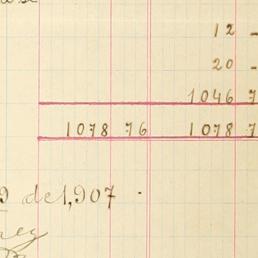 12 -
20 -
1046 7
1078 76 1078 7
9 de 1,907 .